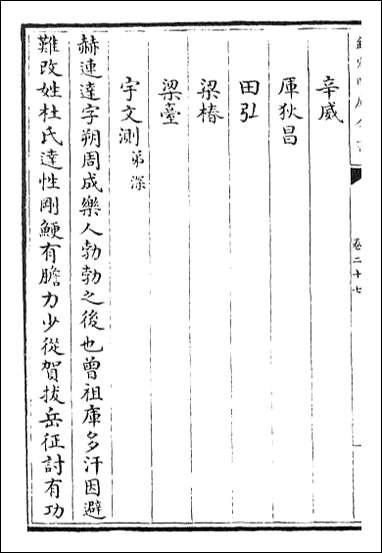 辛威
厙狄昌
田弘
梁椿
梁臺
宇文測弟深
赫連達字朔周成樂人勃勃之後也曾祖庫多汗因避
難改姓杜氏達性剛鯁有膽力少從賀拔岳征討有功
卷二十七